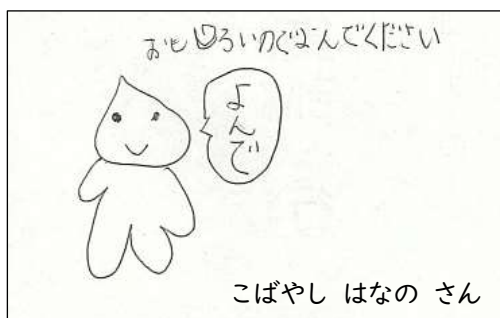 おもしろいのでよんでください
よんで
こばやし はなの さん